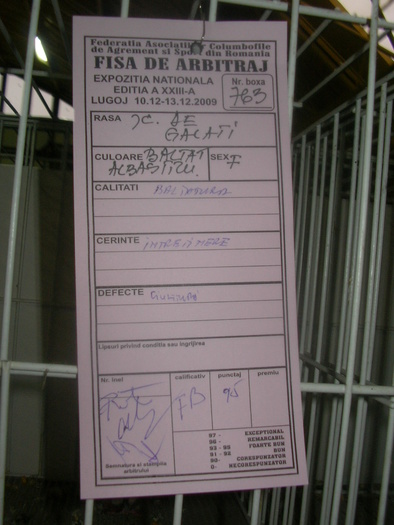 Federatia Asociatiilor Columbofile
de Agrement si Sport din Romania
FISA DE ARBITRAJ
EXPOZITIA NATIONALA
EDITIA A XXIII-A
LUGOJ 10.12-13.12.2009
Nr. boxa
763
RASA JC. DE
GALATI
CULOARE BALTAT
ALBASTRU
SEX F
CALITATI
CERINTE INTRETINERE
DEFECTE
Lipsuri privind conditia sau ingrijirea
Nr. inel
calificativ
punctaj
premiu
FB
95
97 - EXCEPTIONAL
96 - REMARCABIL
93 - 95 FOARTE BUN
91 - 92 BUN
90- CORESPUNZATOR
0- NECORESPUNZATOR
Semnatura si stampila
arbitrului